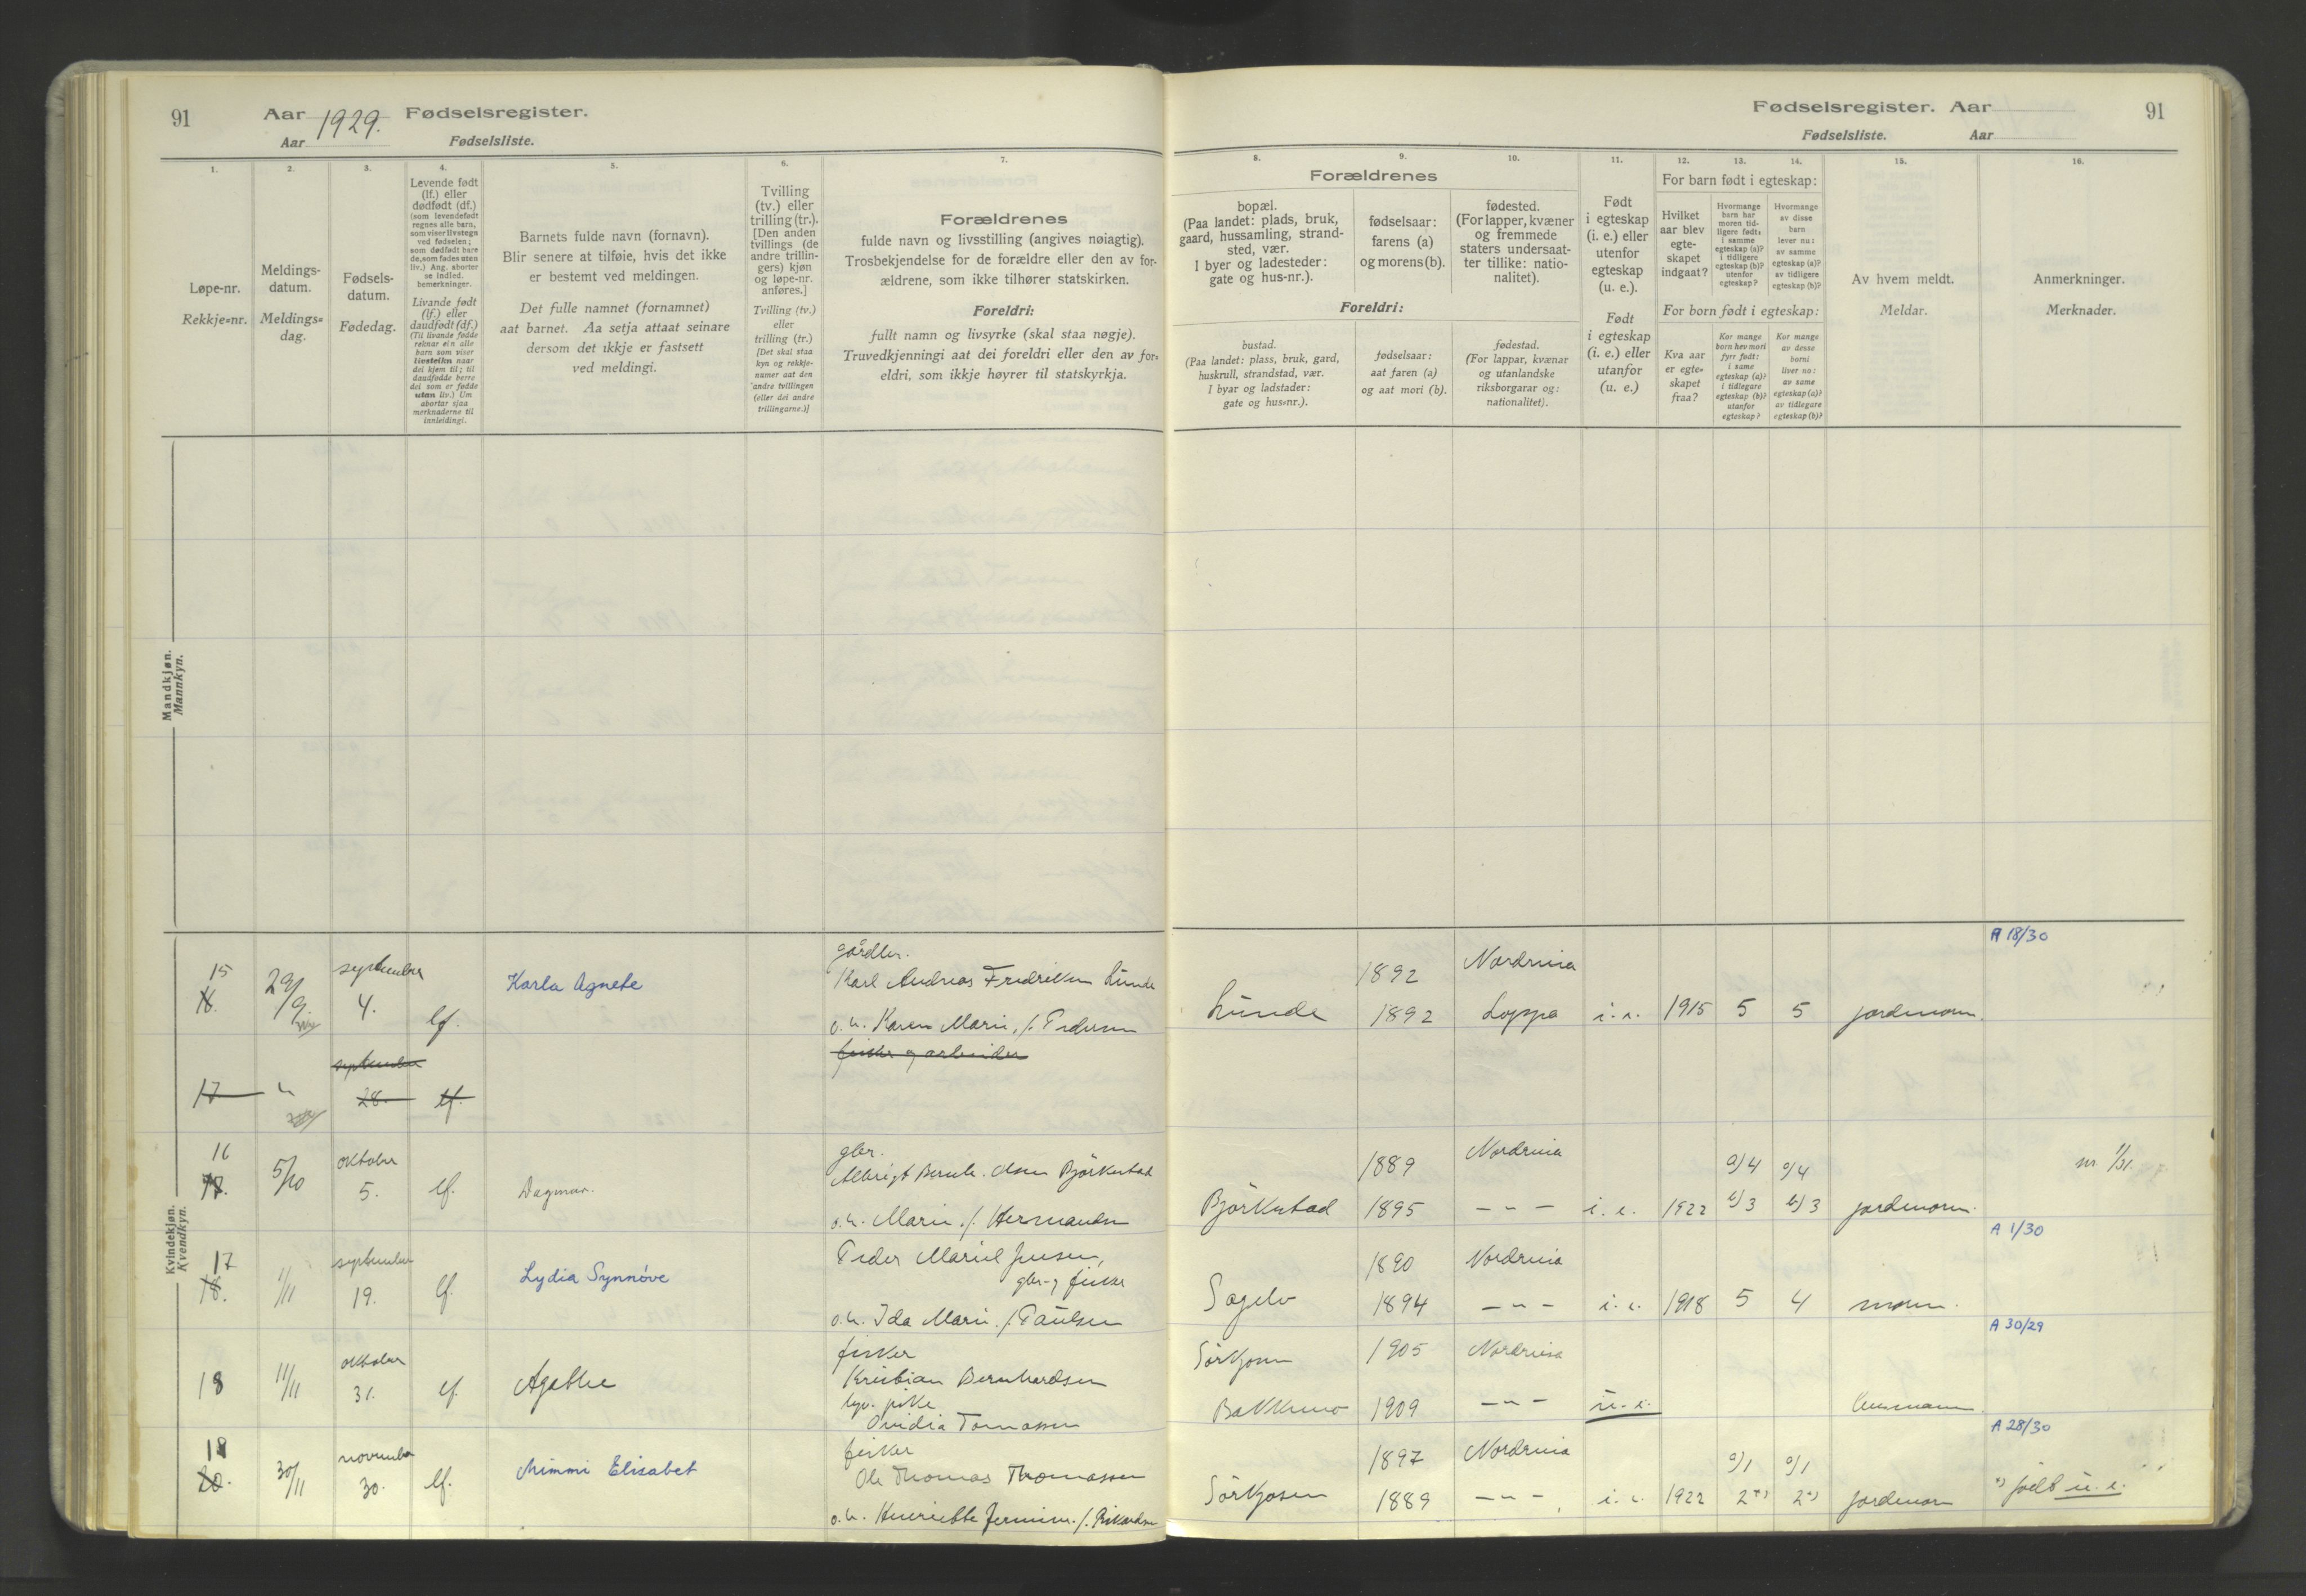 91
Aar 1929. Fødselsregister.
Aar Fødselsliste.
1.
2.
3.
4.
5.
6.
7.
Løpe-nr.
Rekkje=nr.
Meldings-
datum.
Meldings=
dag.
Fødsels-
datum.
Fødedag.
Levende født
(lf.) eller
dødfødt (df.)
(som levendefødt
regnes alle barn,
som viser livstegn
ved fødselen;
som dødfødt bare
de, som fødes uten
liv.) Ang. aborter
se indled.
bemerkninger.
Livande født
(lf.) eller
daudfødt (df.)
(Til livande fødde
reknar ein alle
barn som viser
livsteikn naar
dei kjem til; til
daudfødde berre
dei som er fødde
utan liv.) Um
abortar sjaa
merknaderne til
innleidingi.
Barnets fulde navn (fornavn).
Blir senere at tilføie, hvis det ikke
er bestemt ved meldingen.
Det fulle namnet (fornamnet)
aat barnet. Aa setja attaat seinare
dersom det ikkje er fastsett
ved meldingi.
Tvilling
(tv.) eller
trilling (tr.).
[Den anden
tvillings (de
andre trillin-
gers) kjøn
og løpe-nr.
anføres.]
Tvilling (tv.)
eller
trilling (tr.)
[Det skal staa
kyn og rekkje-
numer aat den
andre tvillingen
(eller dei andre
trillingarne.)]
Forældrenes
fulde navn og livsstilling (angives nøiagtig).
Trosbekjendelse for de forældre eller den av for-
ældrene, som ikke tilhører statskirken.
Foreldri:
fullt namn og livsyrke (skal staa nøgje).
Truvedkjenningi aat dei foreldri eller den av for=
eldri, som ikkje høyrer til statskyrkja.
Mandkjøn.
Mannkyn.
Kvindekjøn.
Kvendkyn.
Fødselsregister. Aar
91
Fødselsliste. Aar
8.
9.
10.
11.
12.
13.
14.
15.
16.
Forældrenes
bopæl.
(Paa landet: plads, bruk,
gaard, hussamling, strand-
sted, vær.
I byer og ladesteder:
gate og hus-nr.).
fødselsaar:
farens (a)
og morens (b).
fødested.
(For lapper, kvæner
og fremmede
staters undersaat-
ter tillike: natio-
nalitet).
Foreldri:
bustad.
(Paa landet: plass, bruk, gard,
huskrull, strandstad, vær.
I byar og ladstader:
gate og hus=nr.).
fødselsaar:
aat faren (a)
og aat mori (b).
fødestad.
(For lappar, kvænar
og utanlandske
riksborgarar og:
nationalitet).
Født
i egteskap
(i. e.) eller
utenfor
egteskap
(u. e.).
Født
i egteskap
(i. e.) eller
utanfor
(u. e.)
For barn født i egteskap:
Hvilket
aar blev
egte-
skapet
indgaat?
Hvormange
barn har
moren tid-
ligere født:
i samme
egteskap (a)?
i tidligere
egteskap (b)?
utenfor
egteskap?
Hvormange
av disse
barn
lever nu:
av samme
egteskap (a)?
av tidligere
egteskap (b)?
For born født i egteskap:
Kva aar
er egte=
skapet
fraa?
Kor mange
born hev mori
fyrr født:
i same
egteskap (a)?
i tidlegare
egteskap (b)?
utanfor
egteskap?
Kor mange
av desse
borni
liver no:
av same
egteskap (a)?
av tidlegare
egteskap (b)?
Av hvem meldt.
Meldar.
Anmerkninger.
Merknader.
A 18/30
15
16.
29/9.
september
4.
lf.
Karla Agnete
gårdbr.
Karl Andreas Fredriksen Lunde
o. h. Karen Marie, f. Pedersen
Lunde
1892
1892
Nordreisa
Loppa
i. e.
1915
5
5
jordmoren.
17
"
september
28.
lf.
fisker og arbeider
16
17.
5/10
oktober
5.
lf.
Dagmar.
gbr.
Albrigt Bernh. Olsen Björkestad
o. h. Marie f. Hermansen
Björkestad
1889
1895
Nordreisa
— " —
i. e.
1922
a) 4
b) 3
a) 4
b) 3
jordmoren.
nr. 1/31.
A 1/30
17
18.
1/11
september
19.
lf.
Lydia Synnöve
Peder Mariel Jensen,
gbr. og fisker
o. h. Ida Marie f. Paulsen
Sagelv
1890
1894
Nordreisa
— " —
i. e.
1918
5
4
moren.
A 30/29
18
11/11
oktober
31.
lf.
Agathe
fisker
Kristian Bernhardsen
tjv. pike
Ovidia Tomassen
Sörkjosen
Bakkemo
1905
1909
Nordreisa
— " —
u. e.
A 28/30
19
20.
30/11
november
30.
lf.
Mimmi Elisabet
fisker
Ole Thomas Thomassen
o. h. Henriette Jermine f. Rikardsen
Sörkjosen
1897
1889
Nordreisa
— " —
i. e.
1922
a) 1
2 *)
a) 1
2 *)
jordmoren
*) født u. e.